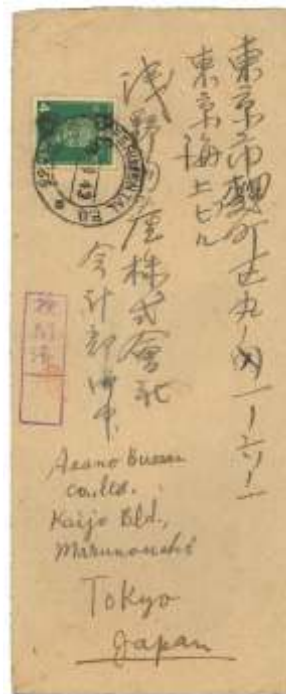 東京市麹町区丸ノ内一ノ六ノ一
東京海上ビル
浅野物産株式會社
会計部御中
4
EXPERIMENTAL P.O.
Asano Bussan
co. ltd.
Kaijo Bld,
Marunouchi
Tokyo
Japan